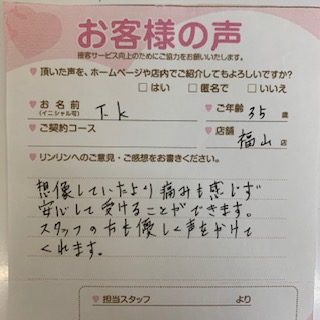 お客様の声
接客サービス向上のためにご協力をお願いいたします。
♥ 頂いた声を、ホームページや店内でご紹介してもよろしいですか?
□ はい □ 匿名で □ いいえ
♥ お名前 (イニシャル可) T.k ♥ ご年齢 35 歳
♥ ご契約コース ♥ 店舗 福山 店
♥ リンリンへのご意見・ご感想をお書きください。
想像していたより痛みも感じず
安心して受けることができます。
スタッフの方も優しく声をかけて
くれます。
♥ 担当スタッフ より